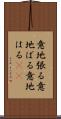 意地張る意
地ばる意地
はる